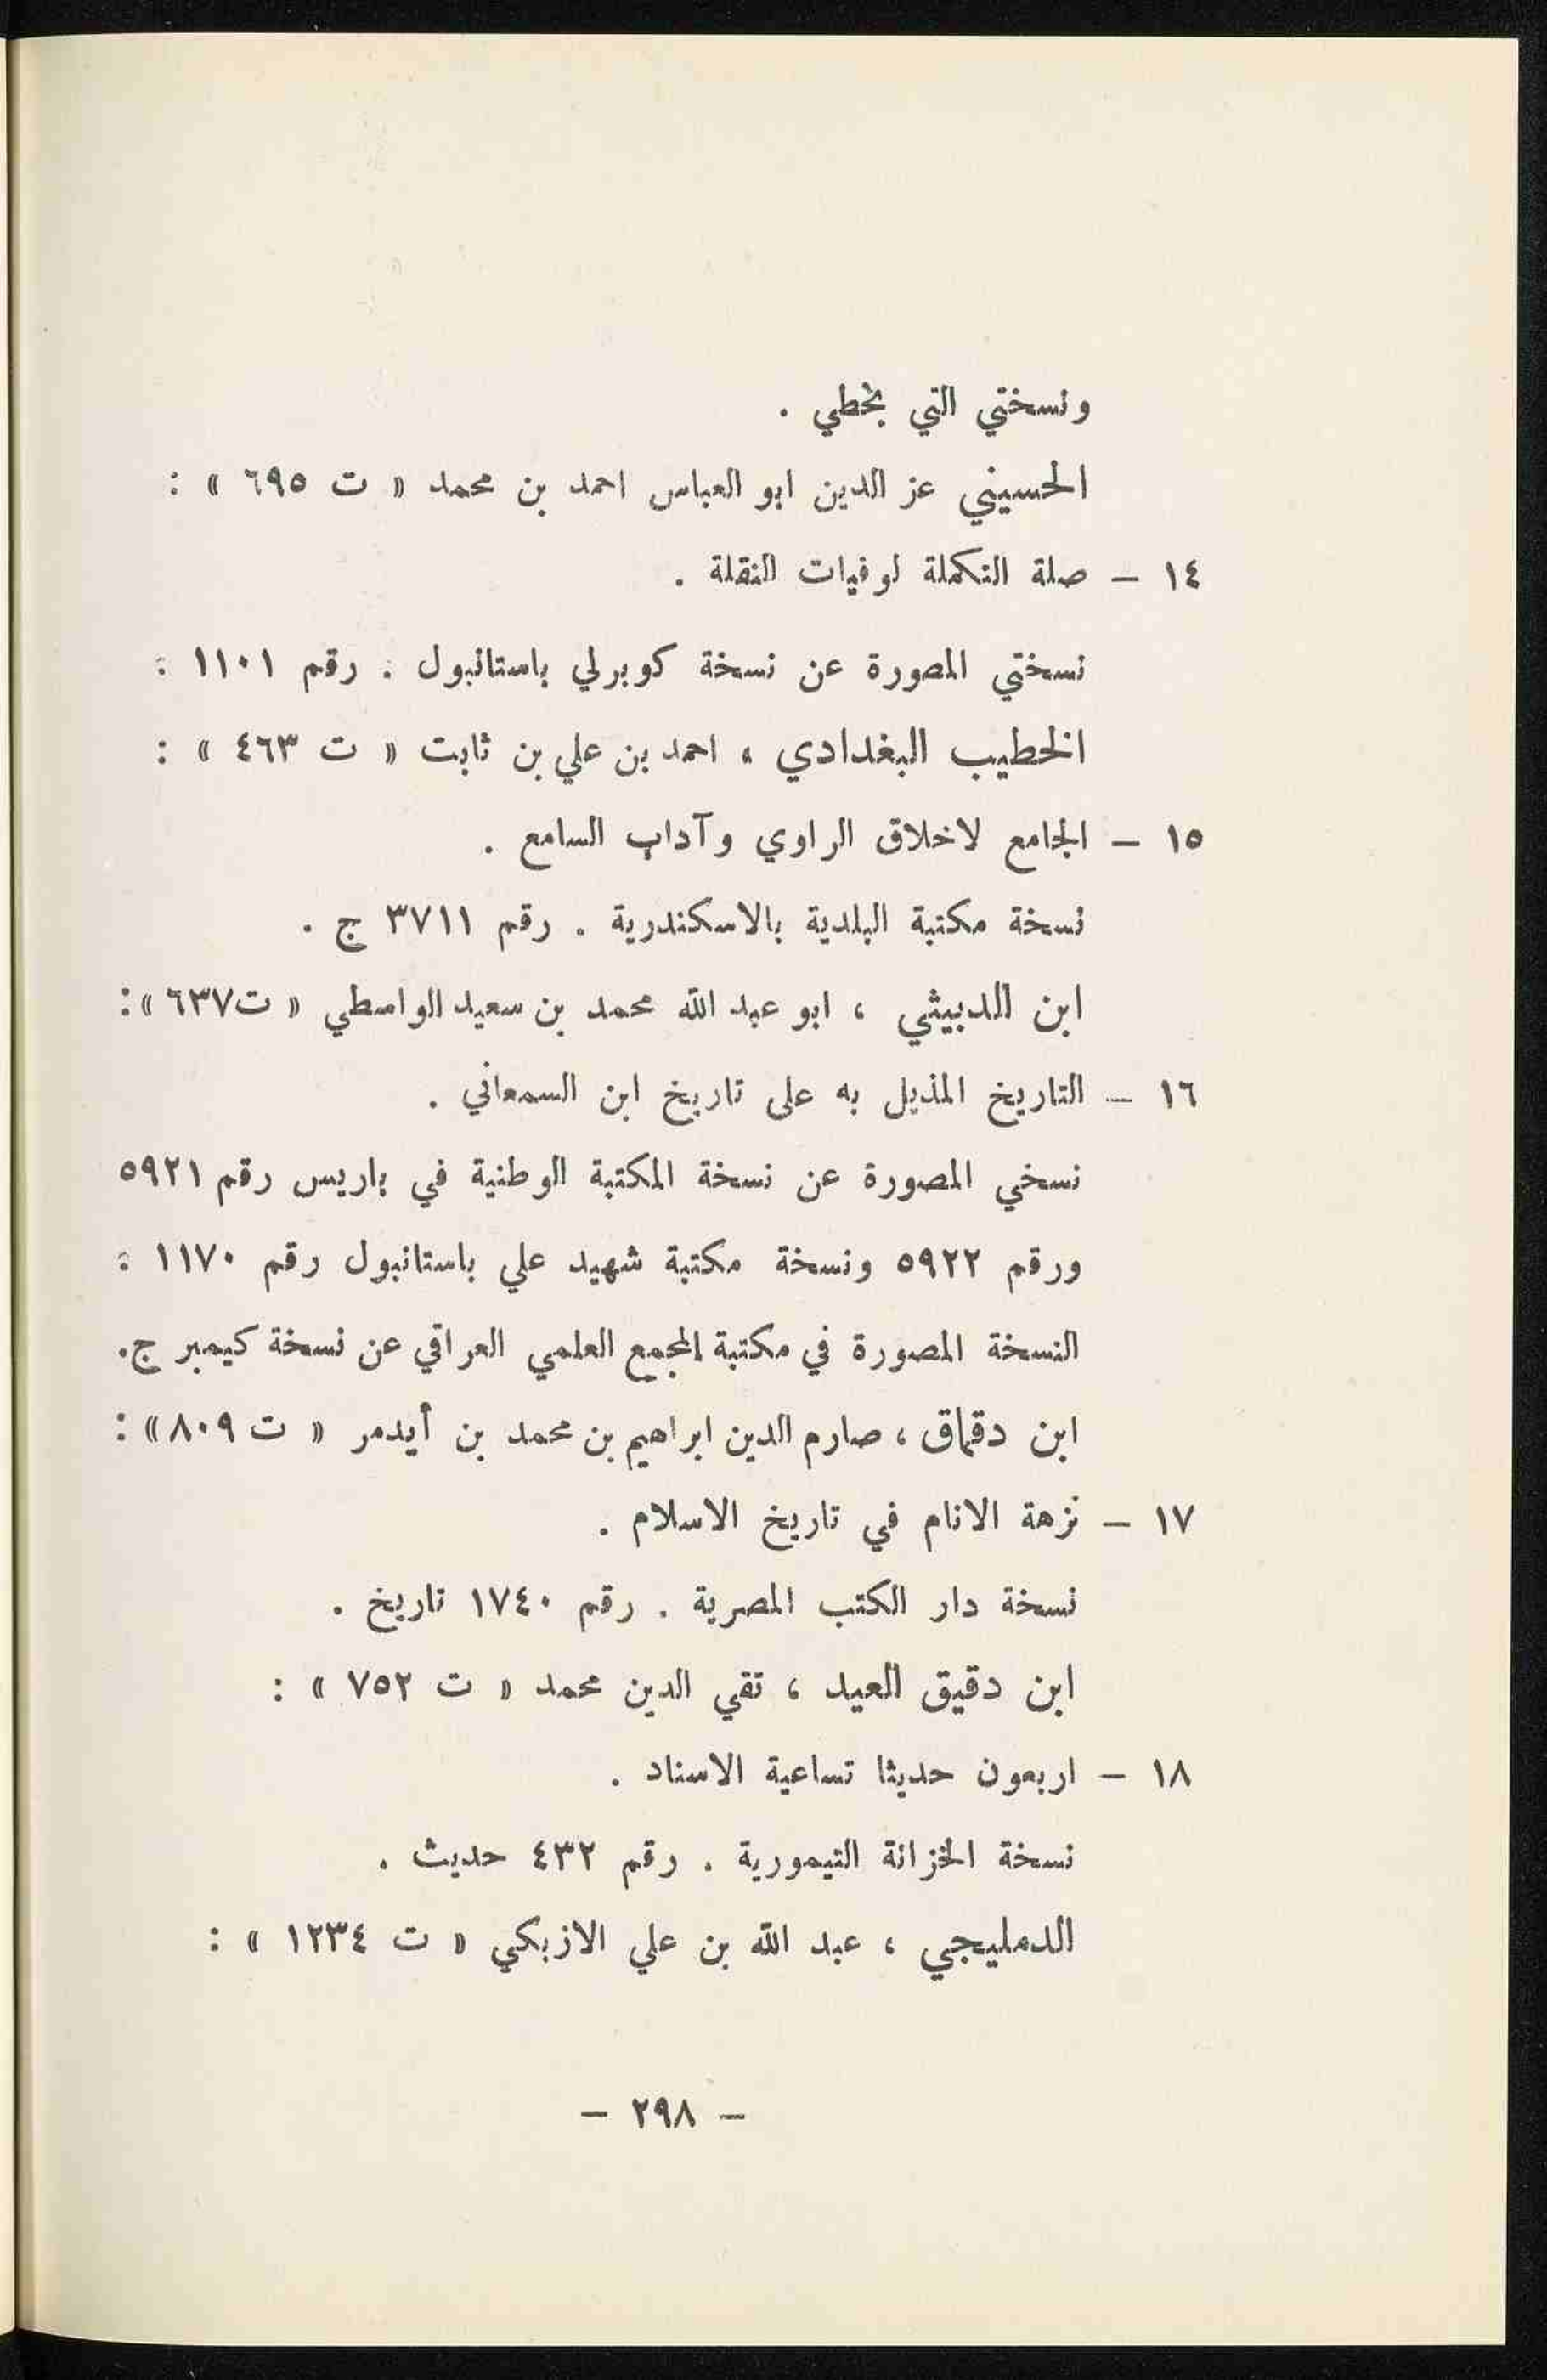 ونسختي التي بخطي .
الحسيني عز الدين ابو العباس احمد بن محمد « ت ٦٩٥ » :
١٤ — صلة التكملة لوفيات النقلة .
نسختي المصورة عن نسخة كوبرلي باستانبول . رقم ١١٠١ :
الخطيب البغدادي ، احمد بن علي بن ثابت « ت ٤٦٣ » :
١٥ — الجامع لاخلاق الراوي وآداب السامع .
نسخة مكتبة البلدية بالاسكندرية . رقم ٣٧١١ ج .
ابن الدبيثي ، ابو عبد الله محمد بن سعيد الواسطي « ت٦٣٧ » :
١٦ — التاريخ المذيل به على تاريخ ابن السمعاني .
نسخي المصورة عن نسخة المكتبة الوطنية في باريس رقم ٥٩٢١
ورقم ٥٩٢٢ ونسخة مكتبة شهيد علي باستانبول رقم ١١٧٠ :
النسخة المصورة في مكتبة المجمع العلمي العراقي عن نسخة كيمبر ج.
ابن دقماق ، صارم الدين ابراهيم بن محمد بن أيدمر « ت ٨٠٩ » :
١٧ — نزهة الانام في تاريخ الاسلام .
نسخة دار الكتب المصرية . رقم ١٧٤٠ تاريخ .
ابن دقيق العيد ، تقي الدين محمد « ت ٧٥٢ » :
١٨ — اربعون حديثا تساعية الاسناد .
نسخة الخزانة التيمورية . رقم ٤٣٢ حديث .
الدمليجي ، عبد الله بن علي الازبكي « ت ١٢٣٤ » :
— ٢٩٨ —